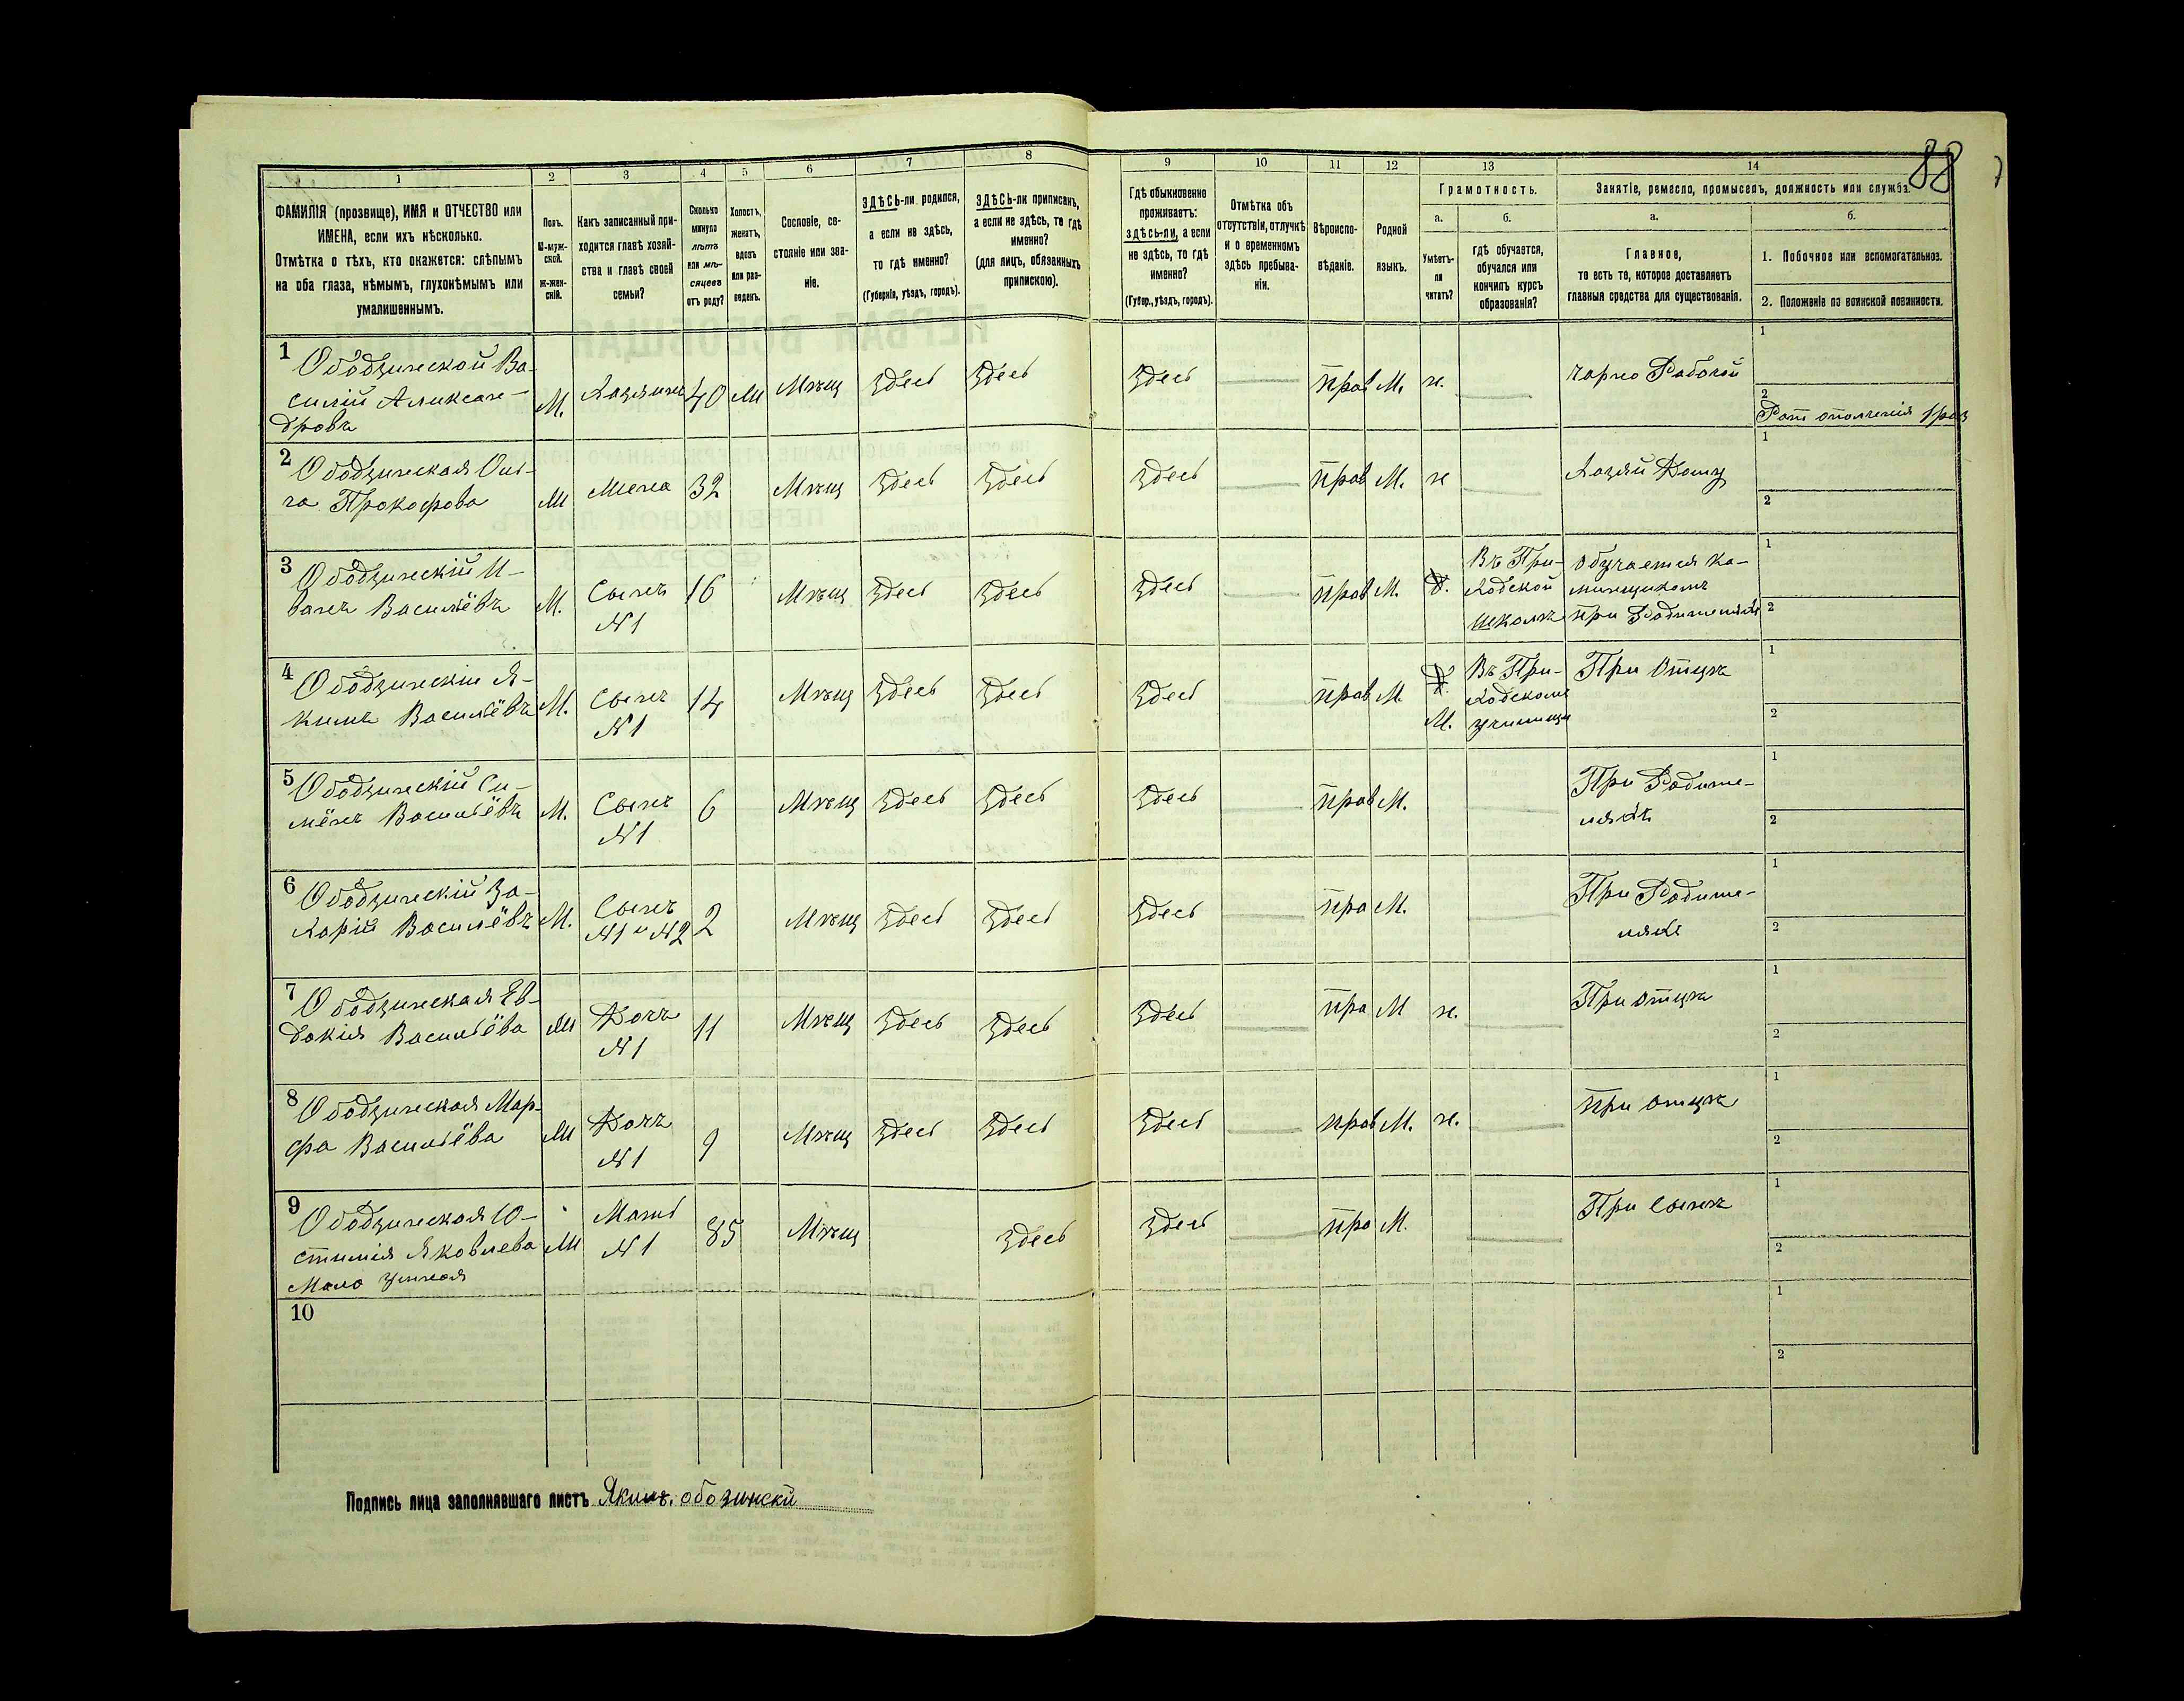 88
1 2 3 4 5 6 7 8 9 10 11 12 13 14
ФАМИЛІЯ (прозвище), ИМЯ и ОТЧЕСТВО или
ИМЕНА, если ихъ нѣсколько.
Отмѣтка о тѣхъ, кто окажется: слѣпымъ
на оба глаза, нѣмымъ, глухонѣмымъ или
умалишеннымъ.
Полъ.
М-муж-
ской.
Ж-жен-
скій.
Какъ записанный при-
ходится главѣ хозяй-
ства и главѣ своей
семьи?
Сколько
минуло
лѣтъ
или мѣ-
сяцевъ
отъ роду?
Холостъ,
женатъ,
вдовъ
или раз-
веденъ.
Сословіе, со-
стояніе или зва-
ніе.
ЗДѢСЬ-ли родился,
а если не здѣсь,
то гдѣ именно?
(Губернія, уѣздъ, городъ).
ЗДѢСЬ-ли приписанъ,
а если не здѣсь, то гдѣ
именно?
(для лицъ, обязанныхъ
припискою).
Гдѣ обыкновенно
проживаетъ:
здѣсь-ли, а если
не здѣсь, то гдѣ
именно?
(Губер., уѣздъ, городъ).
Отмѣтка объ
отсутствіи, отлучкѣ
и о временномъ
здѣсь пребыва-
ніи.
Вѣроиспо-
вѣданіе.
Родной
языкъ.
Грамотность.
а.
Умѣетъ-
ли
читать?
б.
Гдѣ обучается,
обучался или
кончилъ курсъ
образованія?
Занятіе, ремесло, промыселъ, должность или служба.
а.
Главное,
то есть то, которое доставляетъ
главныя средства для существованія.
б.
1. Побочное или вспомогательное.
2. Положеніе по воинской повинности.
1 Ободзинской Ва-
силій Александ-
дровъ
М. Хазяинъ 40 Мѣщ Здесь Здесь Здесь прав М. н. Рабочй
1
2
ополченія
2 Ободзинская
Прокофова
Жена 32 Мѣщ Здесь Здесь Здесь прав М. н
1
2
3 Ободзинскій И-
ванъ Васильёвъ
М. Сынъ 16 Мѣщ Здесь Здесь Здесь прав М.
№1
Въ При-
ходской
школѣ
Обучается ка-
при Родителяхъ
1
2
4 Ободзинскій Я-
кимъ Васильёвъ
М. Сынъ 14 Мѣщ Здесь Здесь Здесь прав М. М.
№1
Въ При-
ходскомъ
При Отцѣ
1
2
5 Ободзинскій Си-
мёнъ Васильёвъ
М. Сынъ 6 Мѣщ Здесь Здесь Здесь прав М.
№1
При Родите-
ляхъ
1
2
6 Ободзинскій За-
харій Васильёвъ
М. Сынъ 2 Мѣщ Здесь Здесь Здесь пра М.
№1 и №2
При Родите-
ляхъ
1
2
7 Ободзинская Ев-
докія Васильёва
Дочъ 11 Мѣщ Здесь Здесь Здесь пра М н.
№1
При отцѣ
1
2
8 Ободзинская Мар-
фа Васильёва
Дочъ 9 Мѣщ Здесь Здесь Здесь прав М. н.
№1
при отцѣ
1
2
9 Ободзинская Ю-
стинія Яковлева
Мать 85 Мѣщ Здесь Здесь пра М.
№1
При Сынѣ
1
2
10
1
2
Подпись лица заполнявшаго листъ Якимъ. обозински